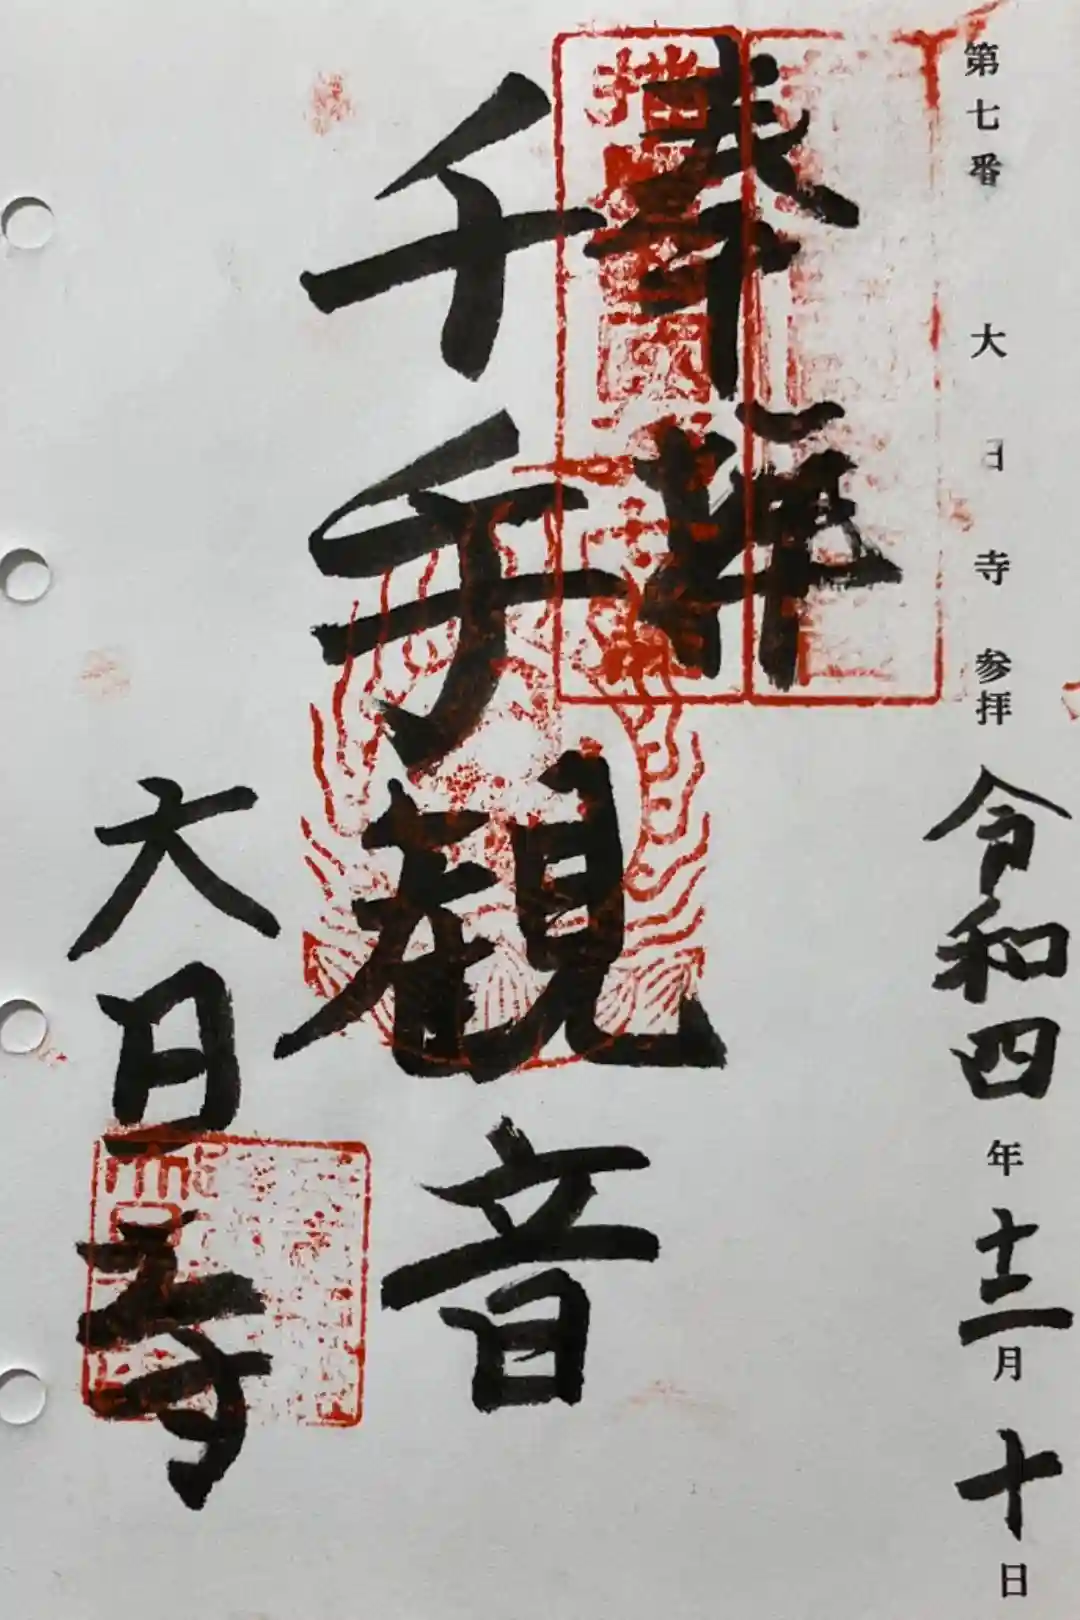 第七番 大日寺 参拝 令和四年十二月十日
奉拝
千手観音
大日寺